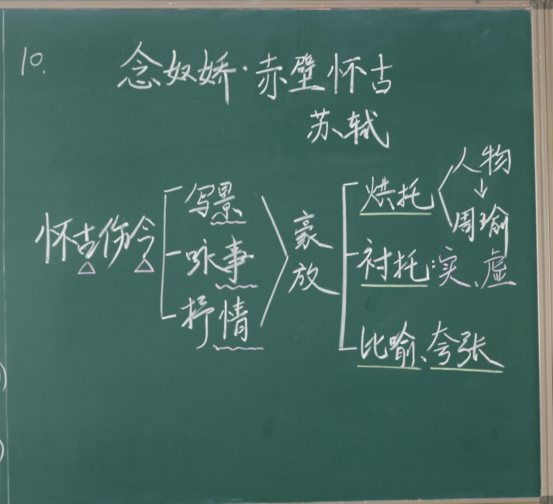 10.
念奴娇·赤壁怀古
苏轼
怀古伤今
写景
咏事
抒情
豪放
烘托
人物
↓
周瑜
衬托:实、虚
比喻、夸张